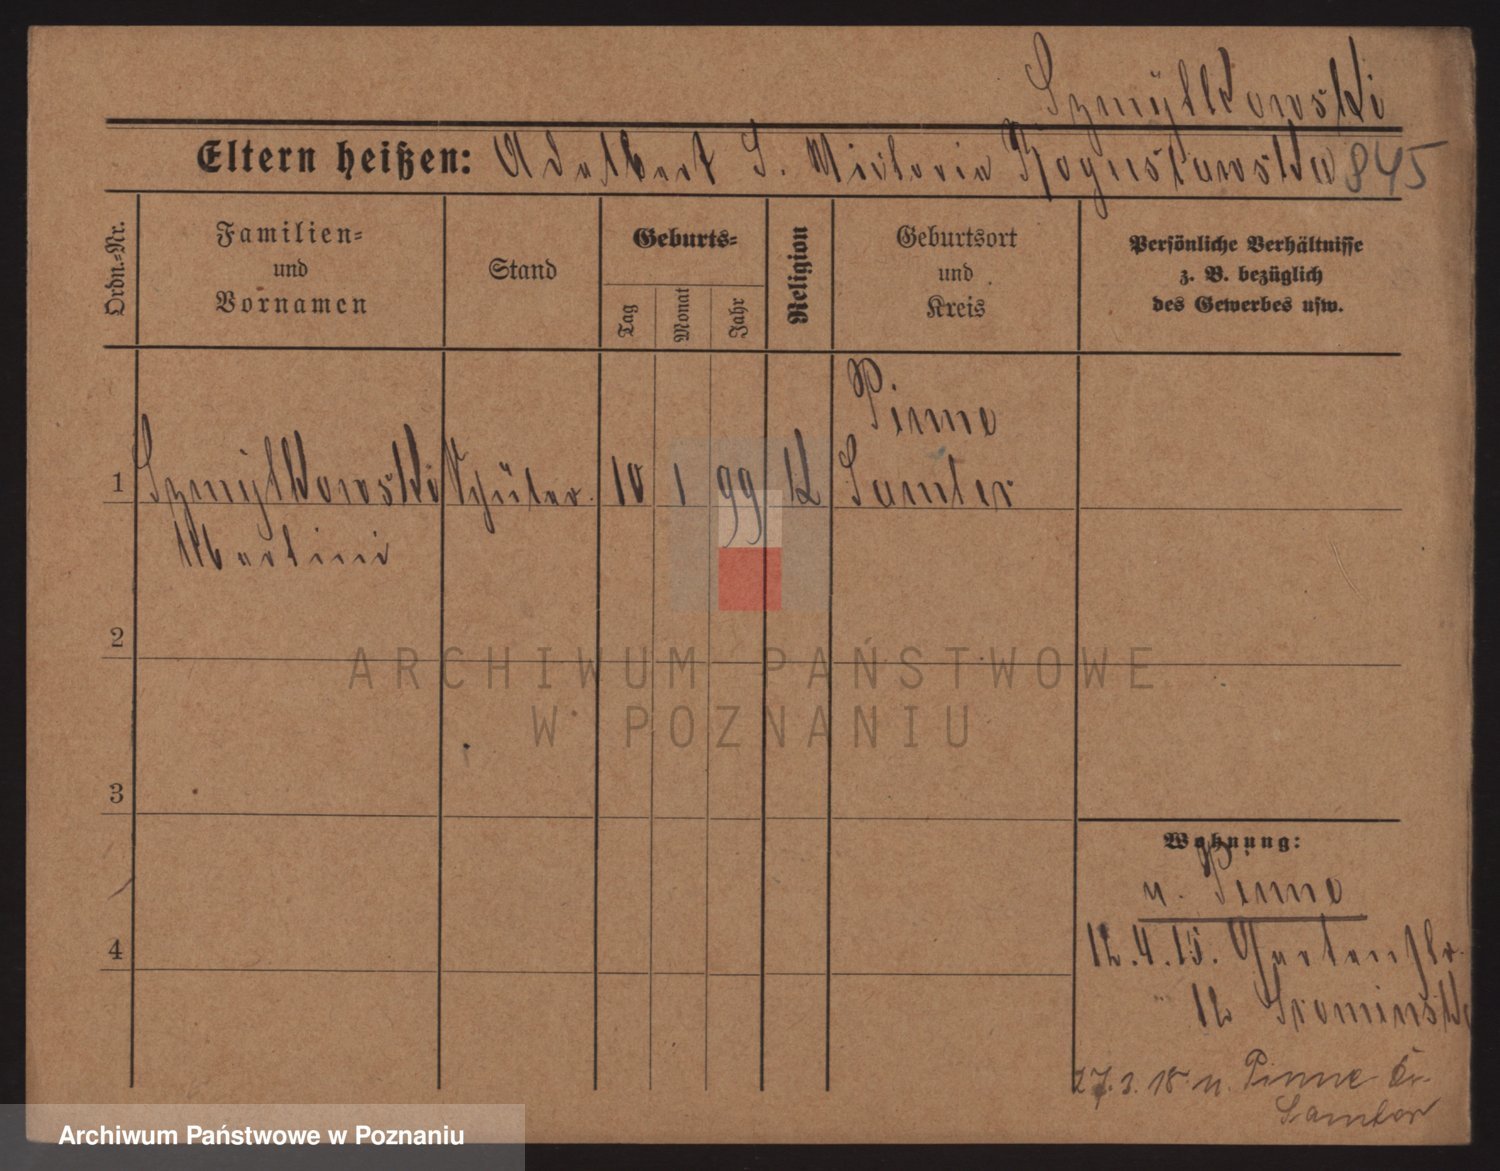 Szmytkowski
Eltern heißen: Adalbert S. Victoria Rogustawska 845
Ordn.-Nr.
Familien-
und
Vornamen
Stand
Geburts-
Tag
Monat
Jahr
Religion
Geburtsort
und
Kreis
Persönliche Verhältnisse
z. B. bezüglich
des Gewerbes usw.
Pinne
1 Szmytkowski Schüler 10 1 99 K Samter
Martin
2
3
4
Wohnung:
n. Pinne
12.4.15. Gartenstr.
12
27.3.18 n. Pinne Kr.
Samter
ARCHIWUM PAŃSTWOWE
W POZNANIU
Archiwum Państwowe w Poznaniu